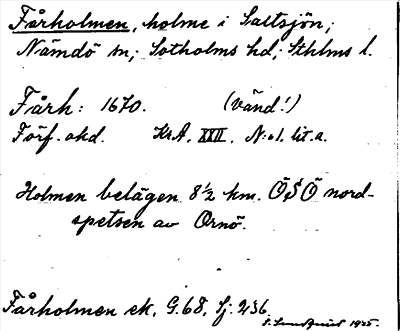 Fårholmen, holme i Saltsjön;
Nämdö sn; Sotholms hd; Sthlms l.
Fårh: 1670. (vänd!)
Förf. okd. KrA. XXII. N:o1. lit. a.
Holmen belägen 8½ km. ÖSÖ nord-
spetsen av Ornö.
Fårholmen ek. G.68. Sj. 236.
1925.